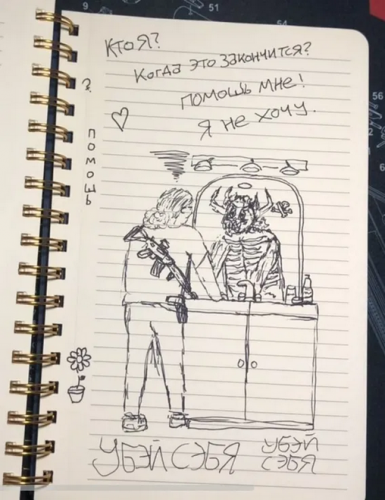 Кто я?
Когда это закончится?
помошь мне!
Я не хочу.
?
помошь
УБЭЙ СЭБЯ
УБЭЙ
СЭБЯ
9
51
54
56